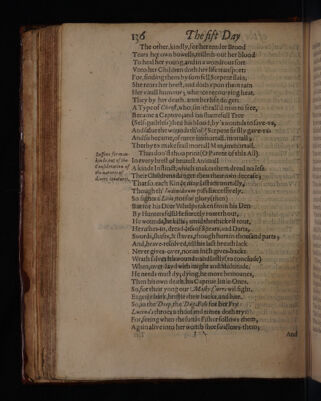 136 The fift Day
The other, kindly, for her tender Brood
Tears her own bowells, trilleth-out her blood
To heal her young, and in a wondrous sort
Vnto her Children doth her life transport:
For, finding them by som fell Serpent slain,
She rents her brest, and doth vpon them rain
Her vitall humour; whence recouering heat,
They by her death, another life do get:
A Type of Christ, who, sin-thrall'd man to free,
Became a Captiue; and on shamefull Tree
(Self-guiltless) shed his blood, by's wounds to saue-vs,
And salue the wounds th'old Serpent firstly gaue-vs:
And so became, of meer immortall, mortall;
Therby to make frail mortall Man, immortall.
Thus doo'st thou print (O Parent of this All)
In every brest of brutest Animall
A kinde Instinct, which makes them dread no less
Their Childrens danger, then their own decease;
That so, each Kinde may last immortally,
Though th' Indiuiduum pass successively.
So fights a Lion, not for glory (then)
But for his Deer Whelps taken from his Den
By Hunters fell: He fiercely roareth out,
He wounds, he kills; amid the thickest rout,
He rushes-in, dread-less of Spears, and Darts,
Swords, shafts, & staues, though hurt in thousand parts;
And, brave-resolved, till his last breath lack
Never gives-over, nor an inch gives-back:
Wrath salves his wounds: and lastly (to conclude)
When, over-layd with might and Multitude,
He needs must dy; dying, he more bemoanes,
Then his own death, his Captive little-Ones.
So, for their young our Masty Currs will fight,
Eagerly bark, bristle their backs, and bite.
So, in the Deep, the Dog-Fish for her Fry
Lucina's throes a thousand times doth try:
For, seeing when the suttle Fisher follows them,
Again alive into her womb she swallows them;
And
Lessons for mankinde